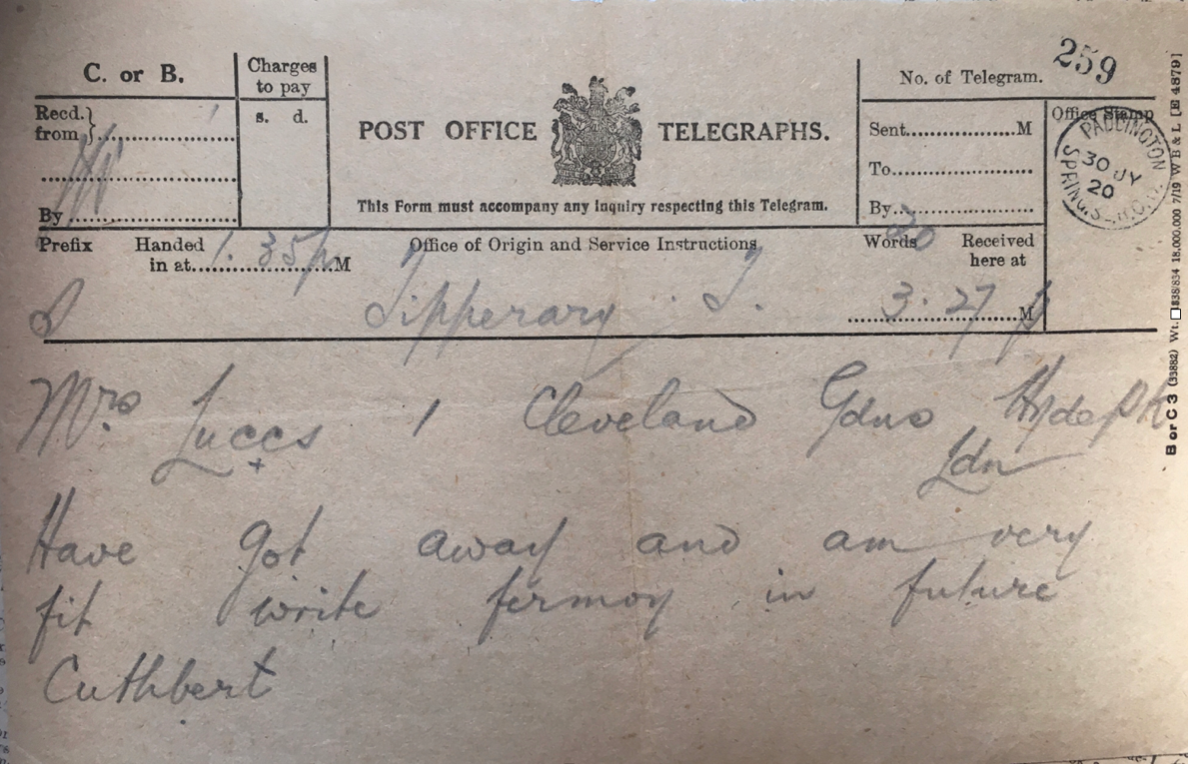 C. or B.
Charges
to pay
s. d.
Recd.
from
By
POST OFFICE TELEGRAPHS.
This Form must accompany any Inquiry respecting this Telegram.
No. of Telegram. 259
Sent M
To
By
Office Stamp
PADDINGTON
30 JY
20
Prefix Handed
in at 1.35p M
Office of Origin and Service Instructions
Words 20
Received
here at
Tipperary T.
3.27 p M
Mrs Luccs 1 Cleveland Gdns Hyde Pk
Ldn
Have got away and am very
fit write fermoy in future
Cuthbert
B or C 3 (33882) Wt. 18,000,000 7/19 W B & L [E 4879]